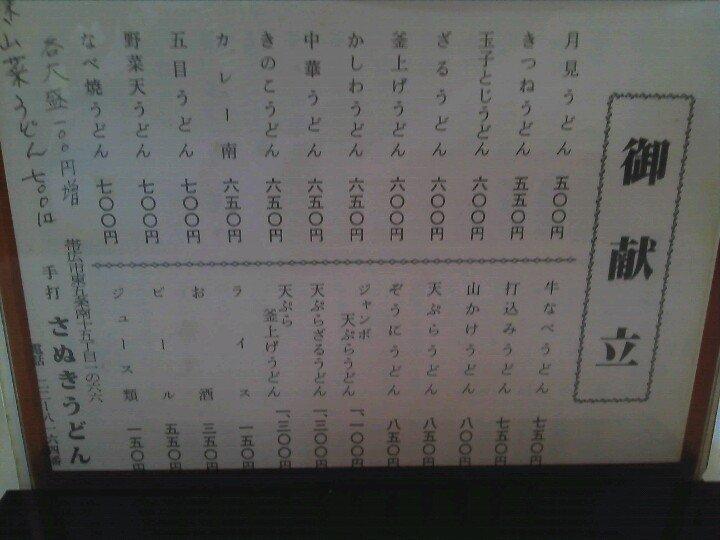 御献立
月見うどん 五〇〇円
きつねうどん 五五〇円
玉子とじうどん 六〇〇円
ざるうどん 六〇〇円
釜上げうどん 六〇〇円
かしわうどん 六五〇円
中華うどん 六五〇円
きのこうどん 六五〇円
カレー南 六五〇円
五目うどん 七〇〇円
野菜天うどん 七〇〇円
なべ焼うどん 七〇〇円
牛なべうどん 七五〇円
打込みうどん 七五〇円
山かけうどん 八〇〇円
天ぷらうどん 八五〇円
ぞうにうどん 八五〇円
ジャンボ天ぷらうどん 一、一〇〇円
天ぷらざるうどん 一、三〇〇円
天ぷら釜上げうどん 一、三〇〇円
ライス 一五〇円
お酒 三五〇円
ビール 五五〇円
ジュース類 一五〇円
各大盛一〇〇円増
山菜うどん 七〇〇円
帯広市東五条南十五丁目一の六六
手打 さぬきうどん